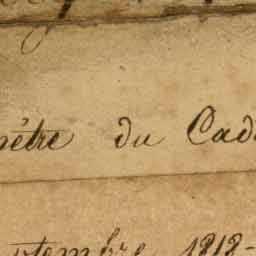 mètre du Cad
septembre 1812-